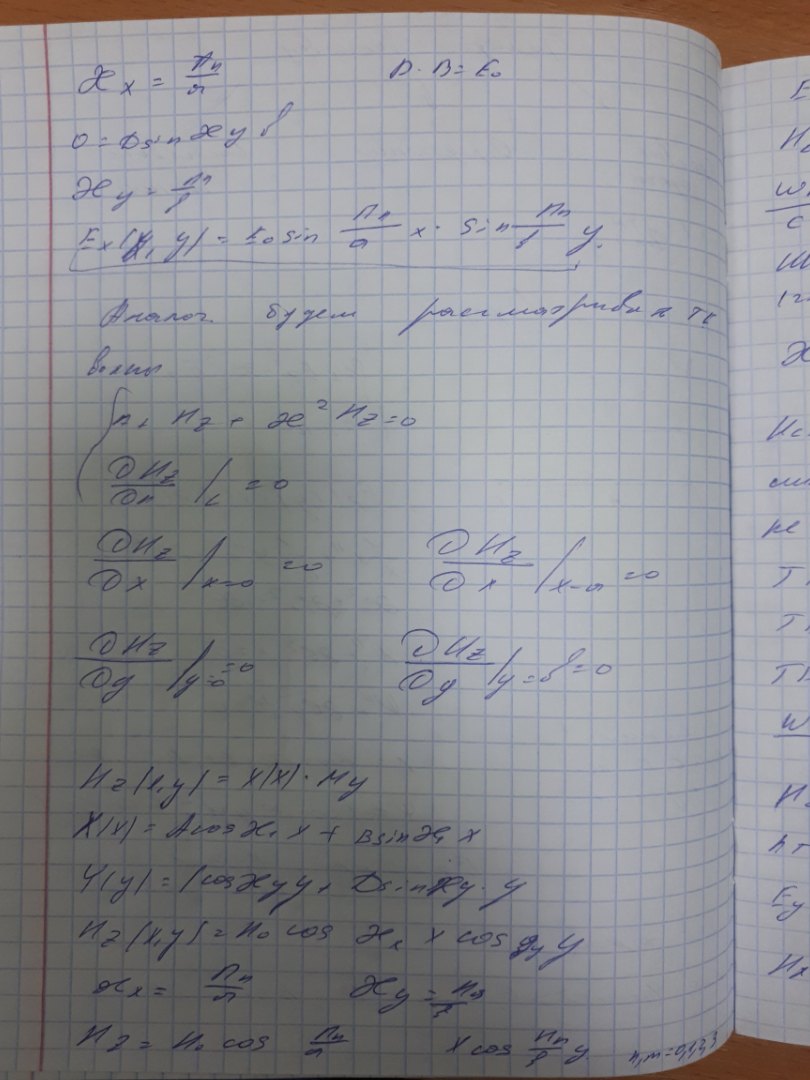 æx = πn/a D·B = E₀
0 = D sin æy b
æy = πn/b
Ex(x, y) = E₀ sin πn/a x · sin πn/b y.
Аналог. будем рассматрива ТЕ
волны
Hz + æ² Hz = 0
∂Hz/∂n |L = 0
∂Hz/∂x |x=0 = 0 ∂Hz/∂x |x=a = 0
∂Hz/∂y |y=0 = 0 ∂Hz/∂y |y=b = 0
Hz(x,y) = X(x)·
X(x) = A cos æx x + B sin æx x
Y(y) = C cos æy y + D sin æy · y
Hz(x,y) = H₀ cos æx x cos æy y
æx = πn/a æy =
Hz = H₀ cos πn/a x cos πn/b y. n,m=0,1,2,3
E
H
W/C
(
æ
Ис
не
T
T
T
W
H
Ey
Hx